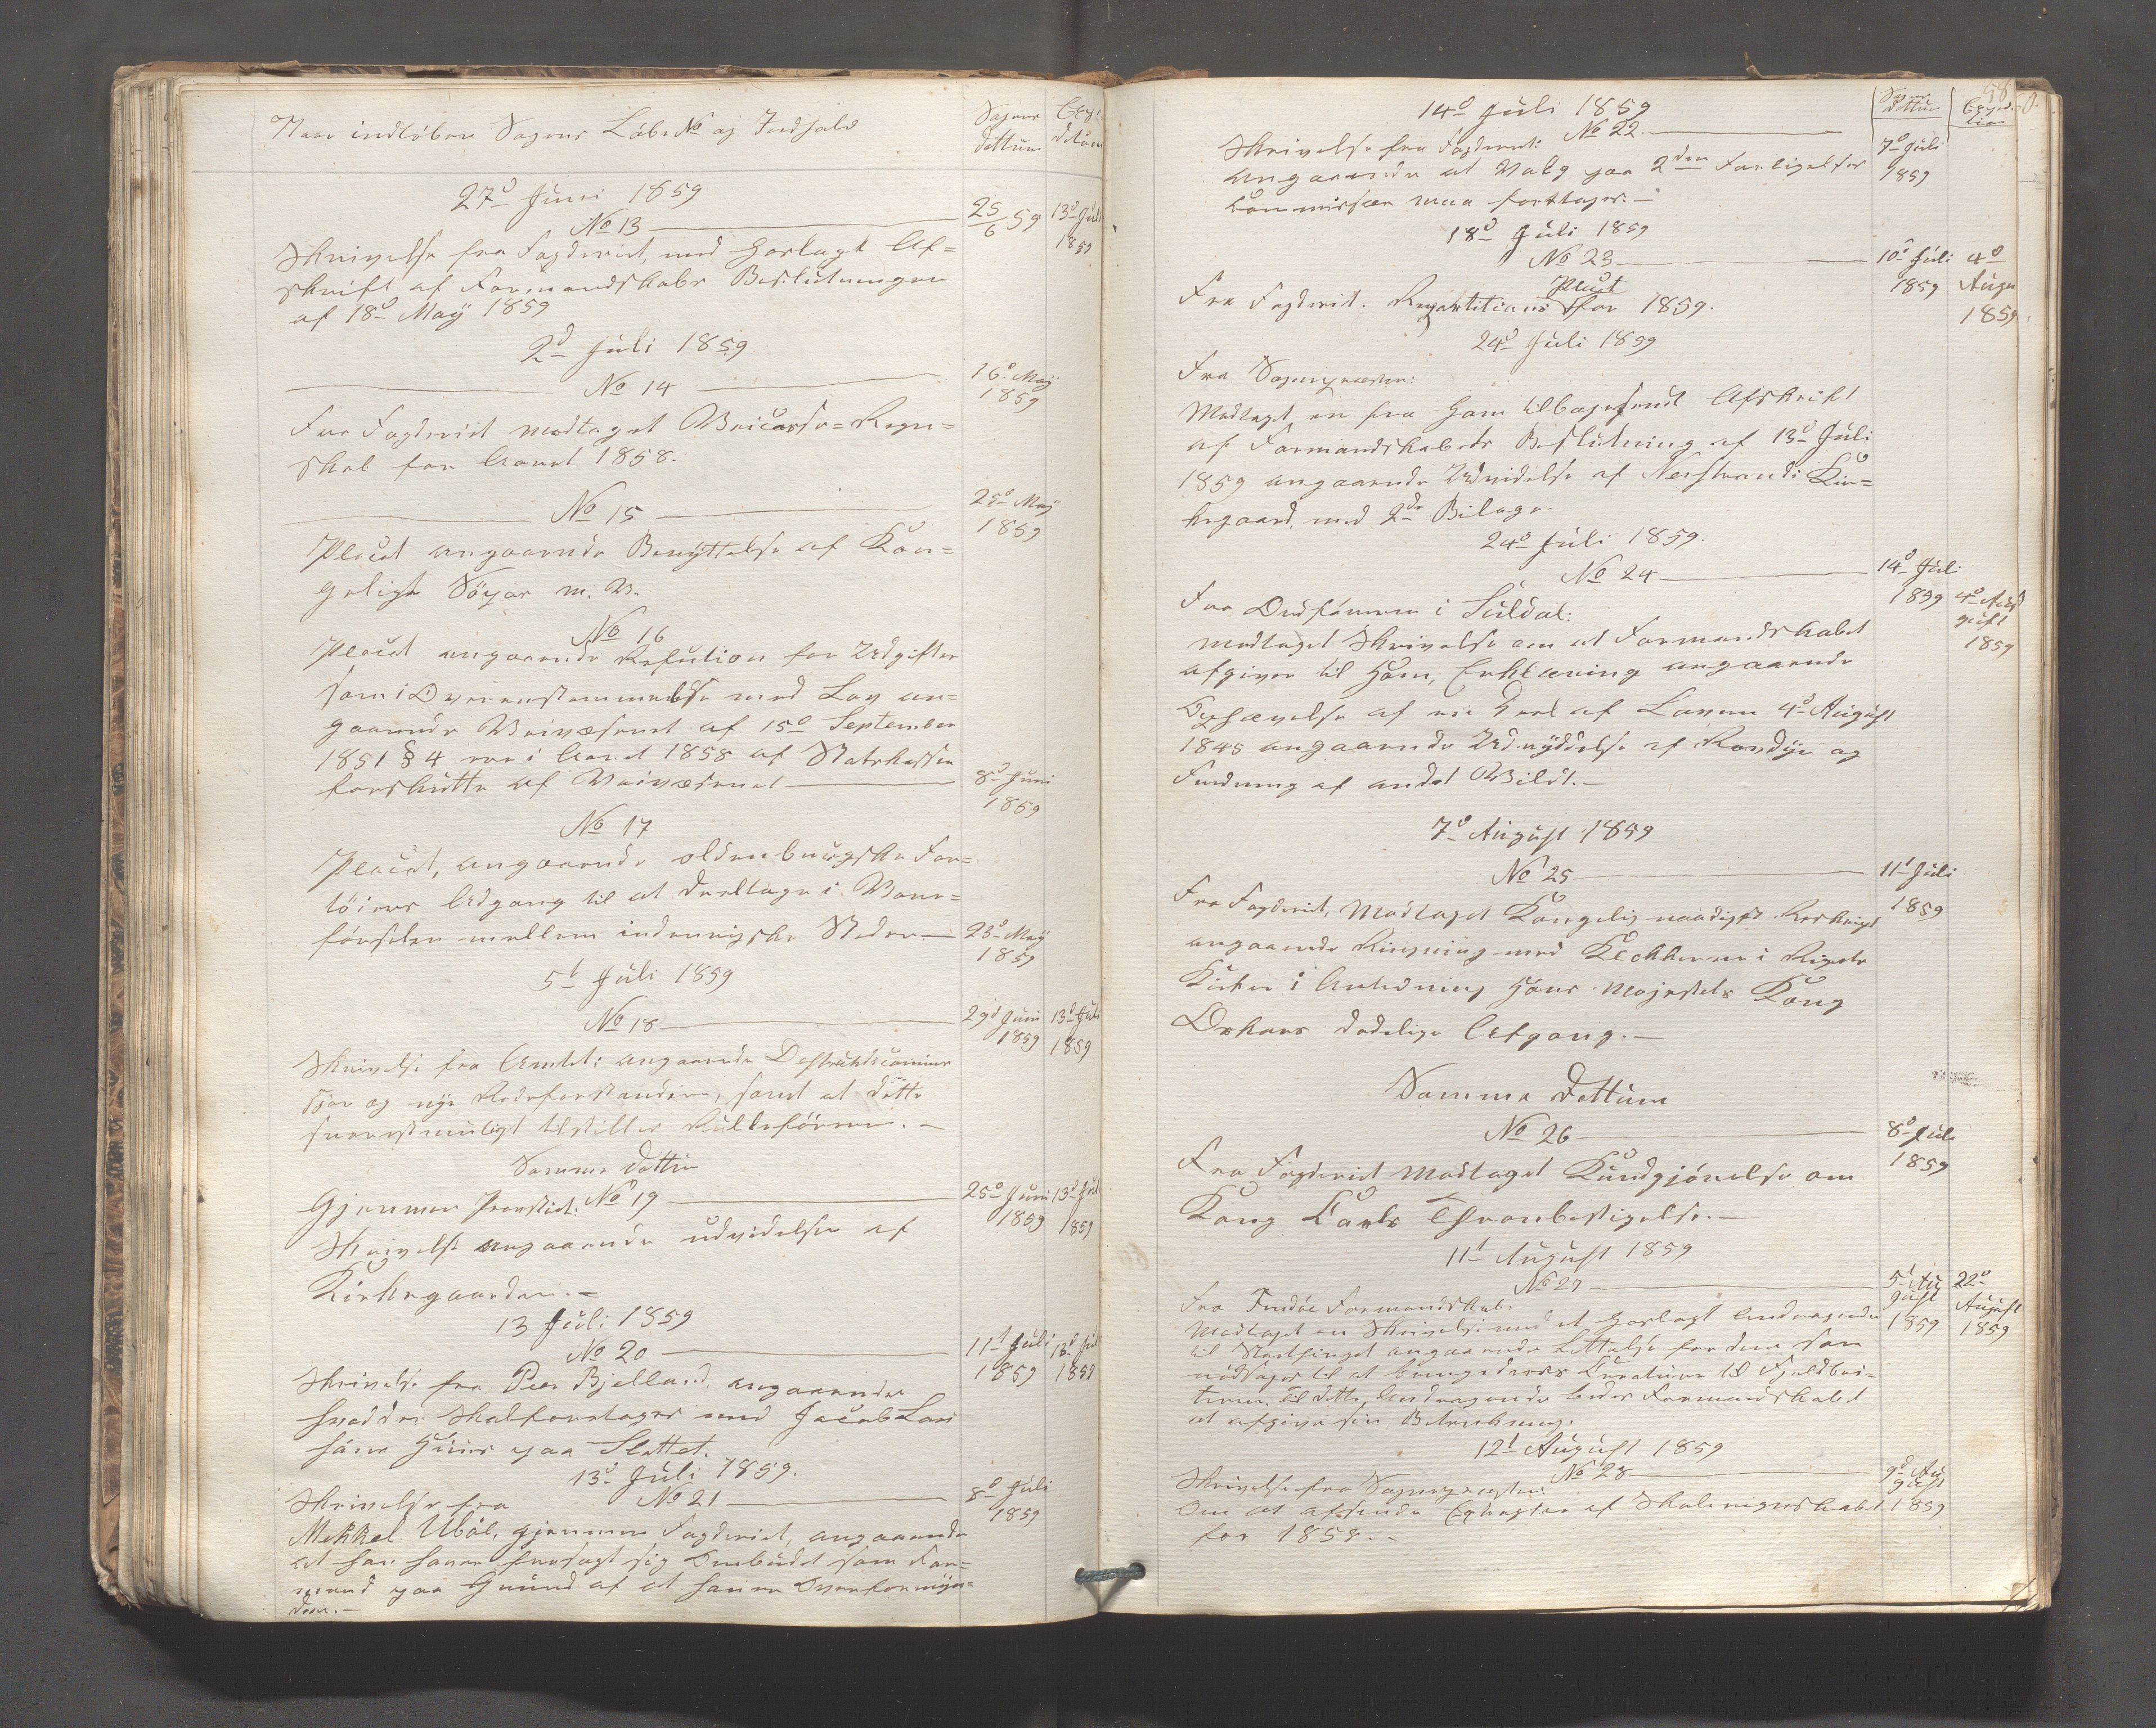 Naar indløben Sagens Løbe No og Indhold
Sagens Dattum
27d Juni 1859
No 13
25/6 59 13d Juli 1859
Skrivelse fra Fogderiet, med Forlagt Af=
skrift af Formandskabs Beslutningen
af 18d May 1859
2d Juli 1859
No 14
16d May 1859
Fra Fogderiet modtaget Regn=
skab for Aaret 1858.
No 15
25d May 1859
Placat angaaende Benyttelse af Kon=
gelige m. V.
No 16
Placat angaaende Refution for Udgifter
som i Overensstemmelse med Lov an=
gaaende Veivæsenet af 15d September
1851 § 4 ere i Aaret 1858 af Statskassen
forskutte af Veivæsenet
8d Juni 1859
No 17
Placat, angaaende oldenburgske Far=
tøiers Adgang til at deeltage i Vare=
førselen mellem indenrigske Steder
23d May 1859
5t Juli 1859
No 18
29d Juni 1859 13d Juli 1859
Skrivelse fra Amtet: angaaende
og nye Rodeforstandere, samt at dette
snarestmuligt tilstilles Rulleføreren.
Samme Dattum
Gjennem Provstiet: No 19
25d Juni 1859 13d Juli 1859
Skrivelse angaaende udvidelse af
Kirkegaarden.
13 Juli 1859
No 20
11t Juli 1859 13d Juli 1859
Skrivelse fra Peer Bjelland, angaaende
hvad der skal foretages med Jacob Lar
søns Huus paa Slettet.
13d Juli 1859.
Skrivelse fra No 21
8d Juli 1859
Mekkel Ubøe, gjennem Fogderiet, angaaende
at han haver frasagt sig Ombudet som For=
mand paa Grund af at han er Overformyn=
der.
14d Juli 1859
Sagens Dattum
Skrivelse fra Fogderiet: No 22.
7d Juli 1859
angaaende at Valg paa 2den Forligelses
Commissær maa foretages.
18d Juli 1859
No 23
10d Juli 1859 4d Augu 1859
Placat
Fra Fogderiet. Repartitions for 1859.
24d Juli 1859
Fra Sognepræsten:
Modtaget en fra Ham tilbagesendt Afskrift
af Formandskabets Beslutning af 13d Juli
1859 angaaende Udvidelse af Nerstrands Kir=
kegaard, med 2de Bilage.
24d Juli 1859.
No 24
14d Juli 1859 4d August 1859
Fra Ordføreren i Suldal:
modtaget Skrivelse om at Formandskabet
afgiver til Ham, Erklæring angaaende
Ophævelse af en Deel af Loven 4d August
1845 angaaende Udryddelse af Rovdyr og
Fredning af andet Vildt.
7d August 1859
No 25
11t Juli 1859
Fra Fogderiet, Modtaget Kongelig naadigst Reskript
angaaende Ringning med Klokkerne i Rigets
Kirker i Anledning Hans Majestets Kong
Oskars dødelige Afgang.
Samme Dattum
No 26
8d Juli 1859
Fra Fogderiet Modtaget Kundgjørelse om
Kong Carls Thronbestigelse.
11t August 1859
No 27
5t August 1859 22d August 1859
Fra Formandskab:
Modtaget en Skrivelse med et Forlagt Andragende
til Storthinget angaaende Lettelse for dem som
nødsages til at bringe deres Creaturer til Fjeldbei=
terne. Til dette Andragende bedes Formandskabet
at afgive sin Betænkning.
12t August 1859
Skrivelse fra Sognepræsten: No 28
9d August 1859
Om at afsende af Skoleregnskabet
for 1858.